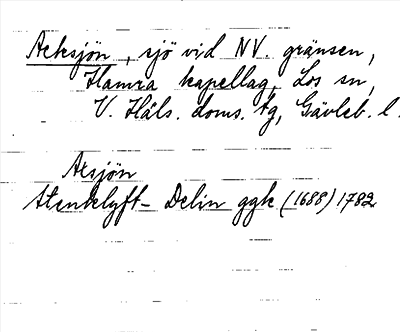 Acksjön, sjö vid NV. gränsen,
Hamra kapellag, Los sn,
V. Häls. doms. tg, Gävleb. l.
Axsjön
Stenklyft- Delin ggk (1688) 1782